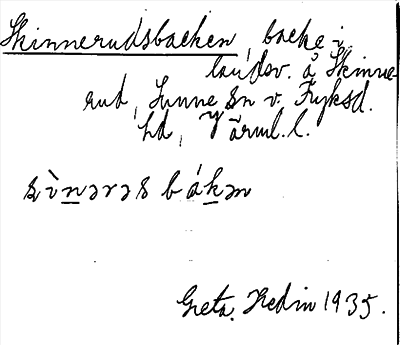 Skinnerudsbacken, backe i
landsv. å Skinne-
rud, Sunne sn v. Fryksd.
hd, Värml. l.
sìnərəs bákən
Greta Hedin 1935.